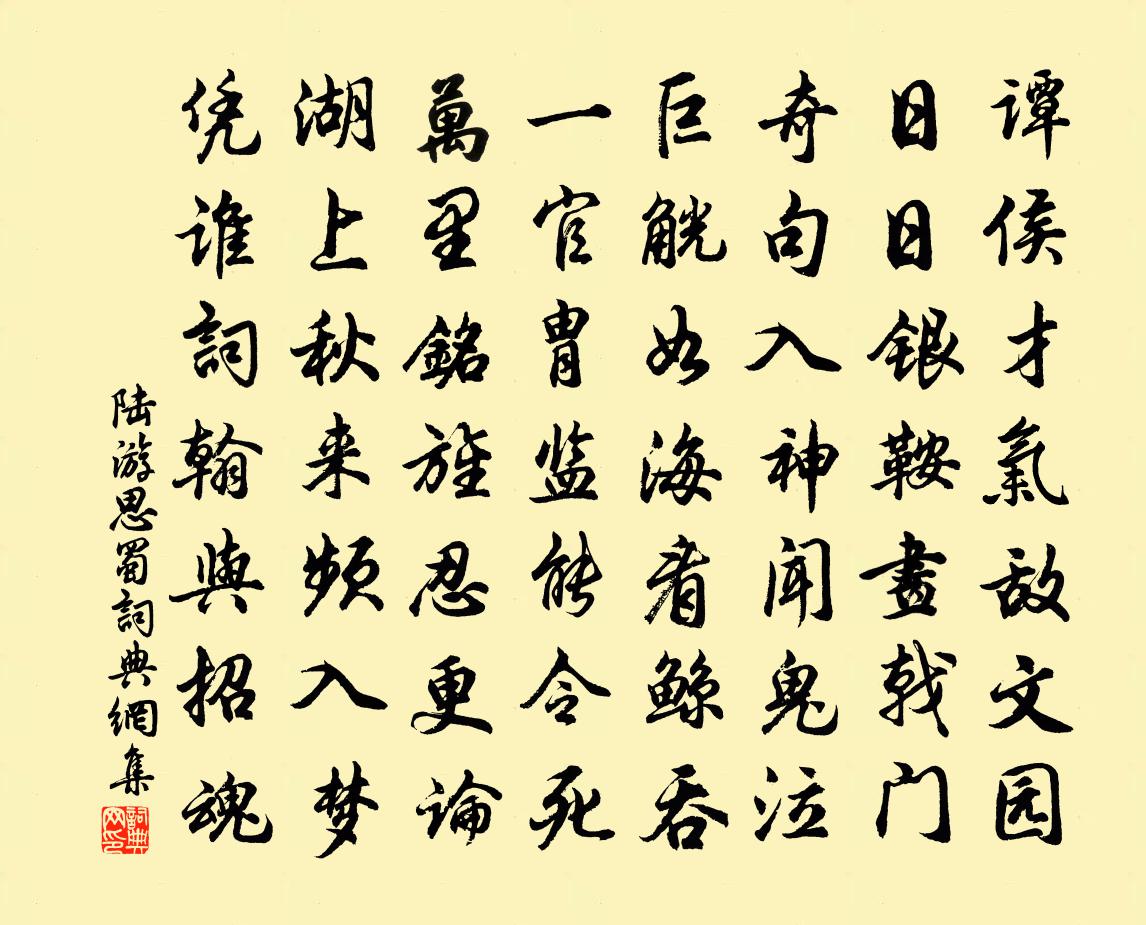 谭侯才氣敌文园
日日银鞍畫戟门
奇句入神闻鬼泣
巨觥如海看鲸吞
一官胄监能令死
萬里銘旌忍更论
湖上秋来频入梦
凭谁詞翰與招魂
陆游思蜀詞典網集
詞典网印